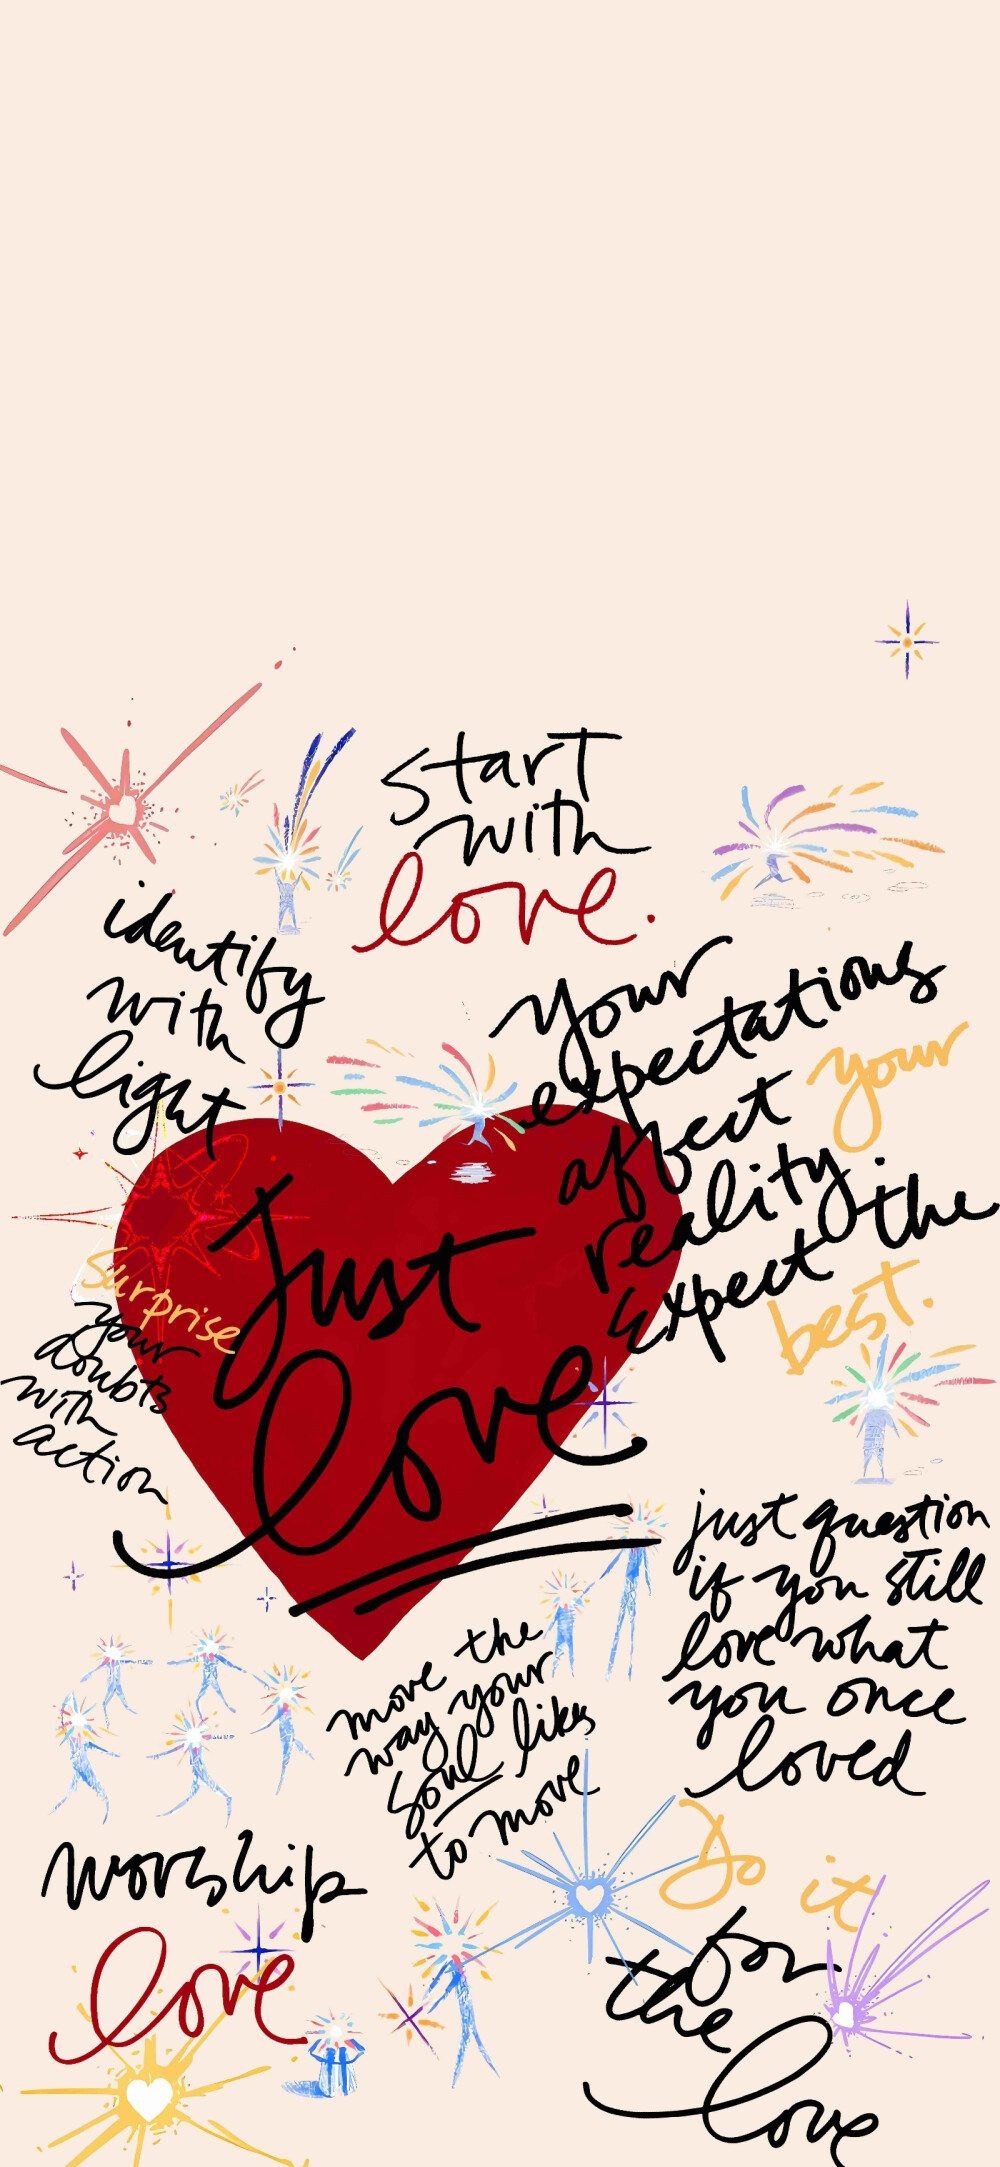 start
with
love.
identify
with
light
Your
expectations
affect your
reality
expect the
best.
Just
love
surprise
your
doubts
with
action
just question
if you still
love what
you once
loved
move the
way your
soul likes
to move
worship
love
Do it
for
the
love